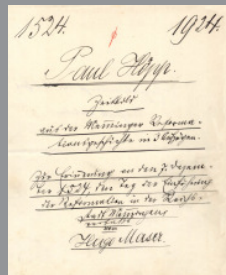 1524. 1924.
Paul Höpp.
Zeitbild
aus der Memminger Reforma-
tionsgeschichte in 3 Aufzügen.
Zur Erinnerung an den 7. Dezem-
ber 1524, den Tag der Einführung
der Reformation in der Reichs-
stadt Memmingen
verfaßt
von
Hugo Maser.